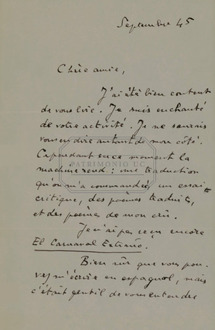 Septembre 45
Chère amie,
J'ai été bien content
de vous lire. Je suis enchanté
de votre activité. Je ne saurais
vous en dire autant de mon côté.
Cependant en ce moment la
machine rend : une traduction
qu'on m'a commandée, un essai
critique, des poèmes traduits,
et des poèmes de mon cru.
Je n'ai pas reçu encore
El Carnaval
Bien sûr que vous pou-
vez m'écrire en espagnol, mais
c'était gentil de vous entendre
PATRIMONIO UC